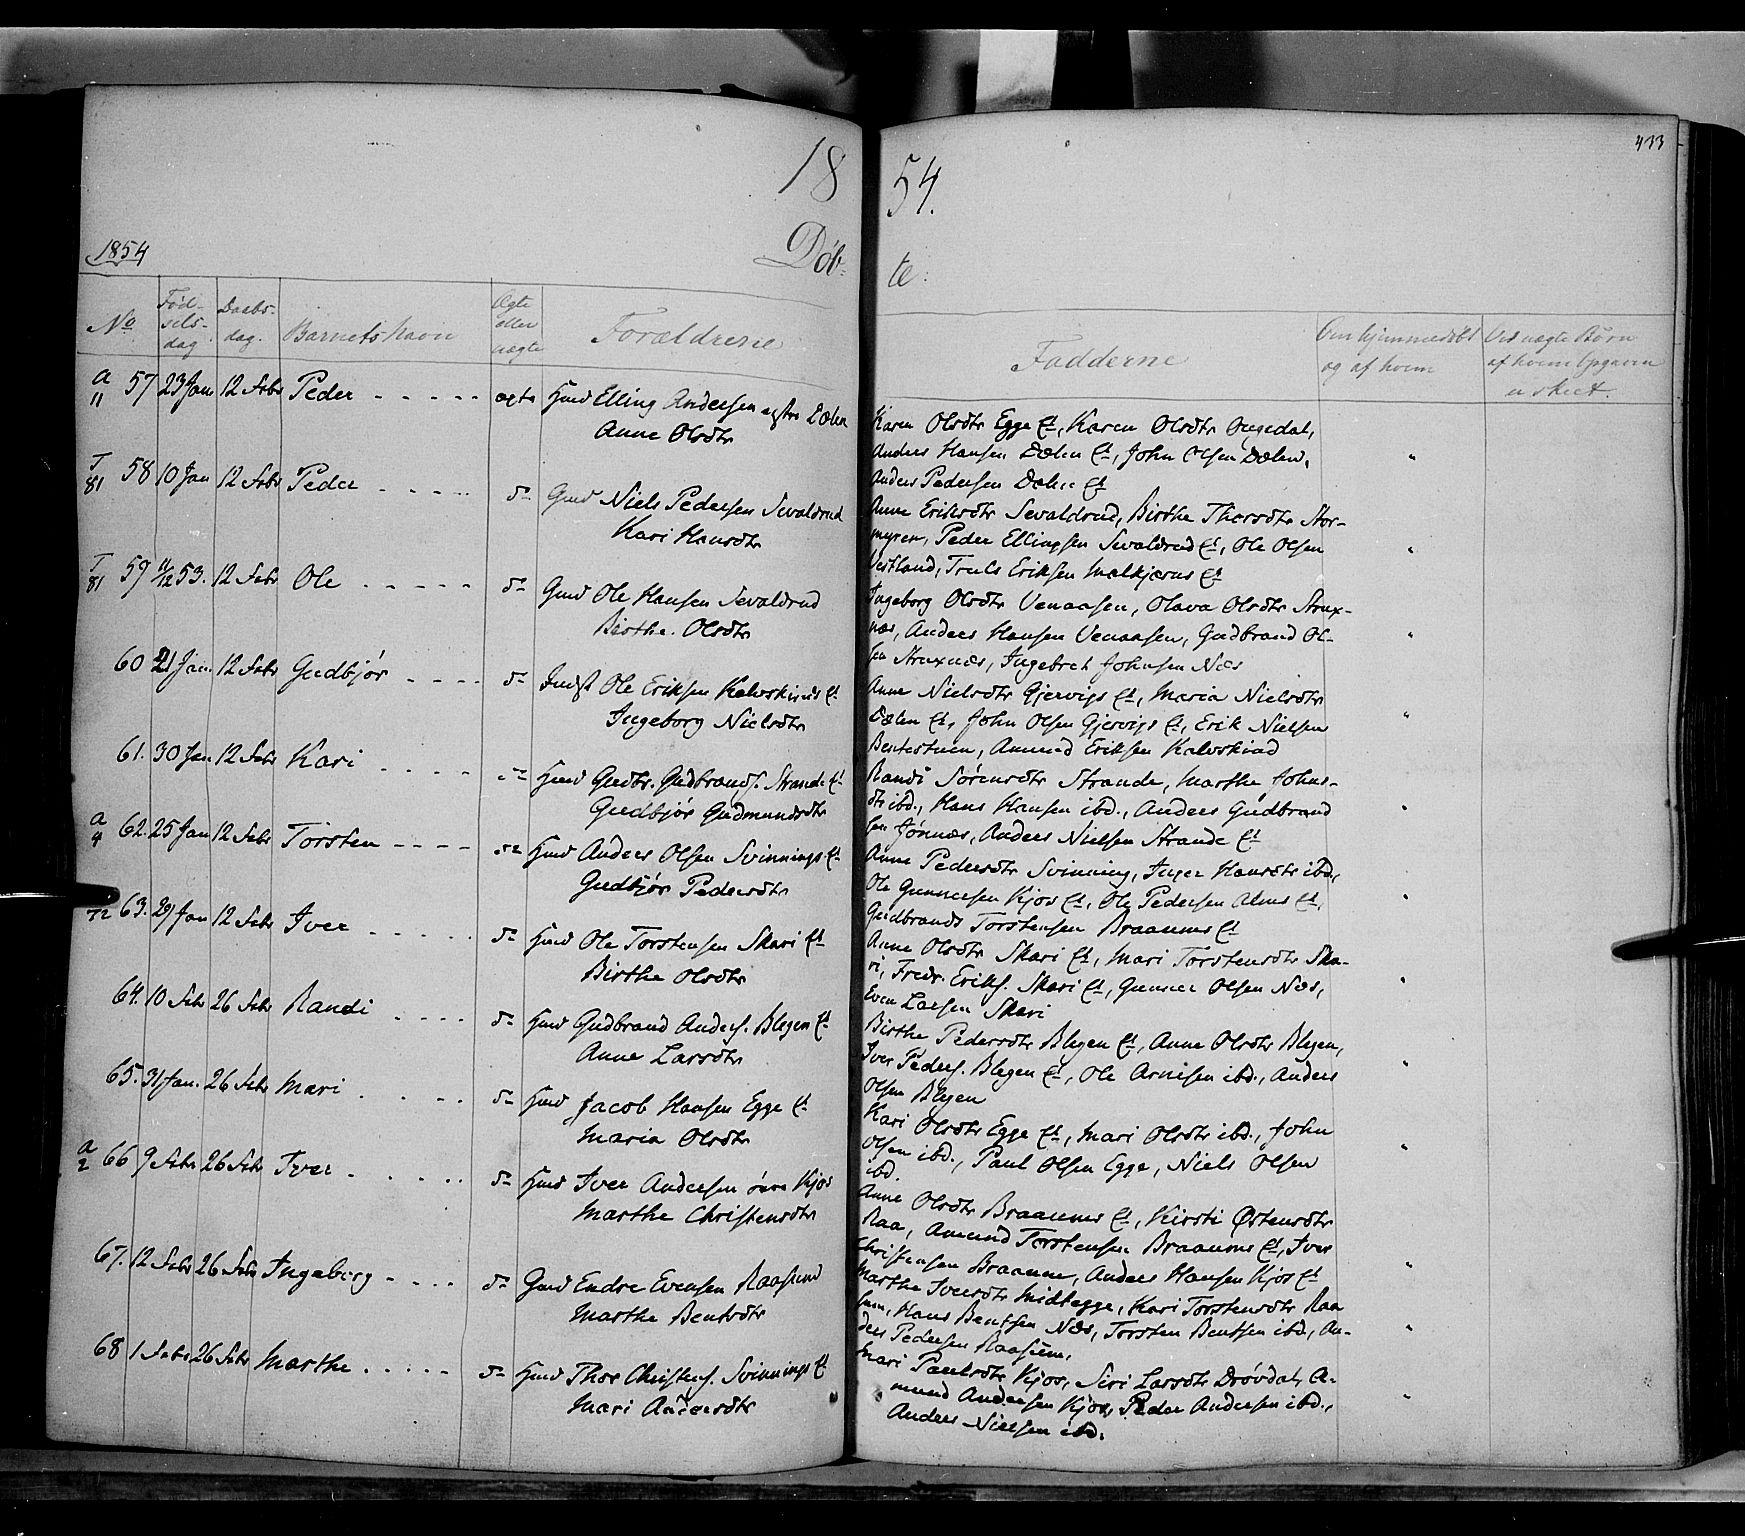 18 54.
433
1854 Døb- te:
No Fød-
sels-
dag
Daabs-
dag.
Barnets Navn
Ægte
eller
uægte
Forældrene
Fadderne
Om hjemmedøbt
og af hvem
Ved uægte Børn
af hvem Opgaven
er skeet.
a
11 57 23 Jan 12 Febr Peder - - - - - ægte Huusm Elling Andersen Dælen
Anne Olsdtr
Karen Olsdtr Egge Et, Karen Olsdtr
Anders Hansen Dælen Et, John Olsen Dælen,
Anders Pedersen Dælen Et
T
81 58 10 Jan 12 Febr Peder - - - - do Gmd Niels Pedersen Sevaldrud
Kari Hansdtr
Anne Eriksdtr Sevaldrud, Birthe Thorsdtr Stor-
myren, Peder Ellingsen Sevaldrud Et, Ole Olsen
Vestland, Truls Eriksen Mælkjærns Et
T
81 59 11/12 53. 12 Febr Ole - - - - - do Gmd Ole Hansen Sevaldrud
Birthe Olsdtr
Ingeborg Olsdtr Venaasen, Olava Olsdtr Strux-
næs, Anders Hansen Venaasen, Gudbrand Ol-
sen Struxnæs, Ingebret Johnsen Næs
60 21 Jan 12 Febr Gudbjør - - - - do Indst Ole Eriksen Kalvskinds Et
Ingeborg Nielsdtr
Anne Nielsdtr Gjervigs Et, Maria Nielsdtr
Dælen Et, John Olsen Gjervigs Et, Erik Nielsen
Bentestuen, Amund Eriksen Kalvskind
61. 30 Jan 12 Febr Kari - - - - do Huusm Gudbr. Gudbrands. Strande Et
Gudbjør Gudmundsdtr
Randi Sørensdtr Strande, Marthe Johns-
dtr ibd., Hans Hansen ibd., Anders Gudbrand
sen Jønnæs, Anders Nielsen Strande Et
a
4 62. 25 Jan 12 Febr Torsten - - - - do Huusm Anders Olsen Svinnings Et
Gudbjør Pedersdtr
Anne Pedersdtr Svinning, Inger Hansdtr ibd,
Ole Gunnersen Kjos Et, Ole Pedersen Alms Et,
Gudbrands Torstensen Braaums Et
72 63. 29 Jan 12 Febr Iver - - - - - do Huusm Ole Torstensen Skari Et
Birthe Olsdtr
Anne Olsdtr Skari Et, Mari Torstensdtr Ska-
ri, Fredr. Eriks. Skari Et, Gunner Olsen Næs,
Even Larsen Skari
64. 10 Febr 26 Febr Randi - - - - do Huusm Gudbrand Anders. Blegen Et
Anne Larsdtr
Birthe Pedersdtr Blegen Et, Anne Olsdtr Blegen,
Iver Peders. Blegen Et, Ole Arnesen ibd., Anders
Olsen Blegen
65. 31 Jan. 26 Febr Mari - - - - do Huusm Jacob Hansen Egge Et
Maria Olsdtr
Kari Olsdtr Egge Et, Mari Olsdtr ibd., John
Olsen ibd., Paul Olsen Egge, Niels Olsen
ibd.
a
2 66 9 Febr 26 Febr Iver - - - - - do Huusm Iver Andersen øvre Kjos
Marthe Christensdtr
Anne Olsdtr Braaums Et, Kirsti Østensdtr
Raa, Amund Torstensen Braaums Et, Iver
Christensen Braaum, Anders Hansen Kjos Et
67. 12 Febr 26 Febr Ingeborg - - - - do Gmd Endre Evensen Raasum
Marthe Bentsdtr
Marthe Iversdtr Midtegge, Kari Torstensdtr Raa
sum, Hans Bentsen Næs, Torsten Bentsen ibd., An-
ders Pedersen Raasum.
68 1 Febr 26 Febr Marthe - - - - - do Huusm Thor Christens. Svinnings Et
Mari Andersdtr
Mari Paulsdtr Kjos, Siri Larsdtr Drøvdal, A-
mund Andersen Kjos, Peder Andersen ibd.,
Anders Nielsen ibd.